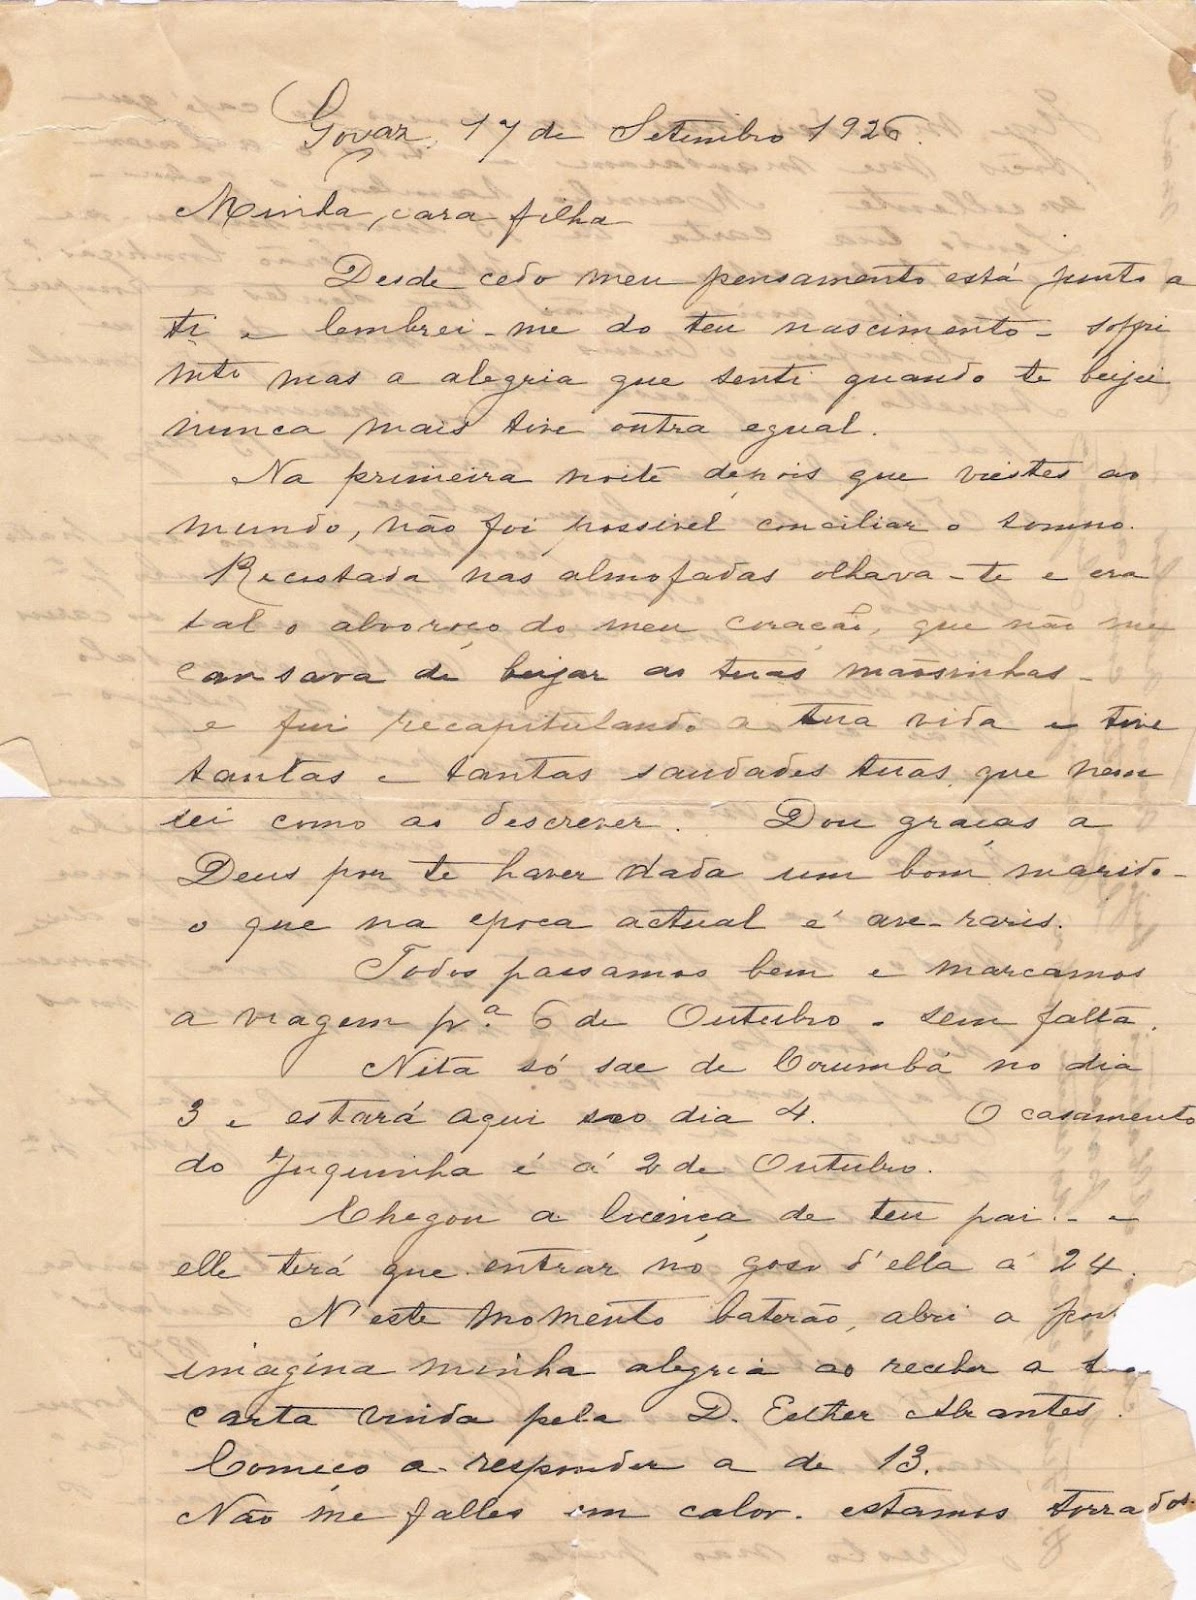 Goyaz, 17 de Setembro 1926.
Minha, cara filha
Desde cedo meu pensamento está junto a
ti e lembrei-me do teu nascimento - soffri
mto mas a alegria que senti quando te beijei
nunca mais tive outra egual.
Na primeira noite depois que viestes ao
mundo, não foi possivel conciliar o somno.
Recostada nas almofadas olhava-te e era
tal o alvoroço do meu coração, que não me
cansava de beijar as tuas mãosinhas -
e fui recapitulando a tua vida e tive
tantas e tantas saudades tuas, que nem
sei como as descrever. Dou graças a
Deus por te haver dada um bom marido -
o que na epoca actual é ave-raris.
Todos passamos bem e marcamos
a viagem pr.ª 6 de Outubro - sem falta.
Nita só sae de Corumbá no dia
3 e estará aqui dia 4. O casamento
do Juquinha é á 2 de Outubro.
Chegou a licença de teu pai - e
elle terá que entrar no goso d'ella á 24.
N'este momento baterão, abri a por
imagina minha alegria ao receber a tua
carta vinda pela D. Esther Abrantes.
Começo a responder a de 13.
Não me falles em calor. estamos torrados.